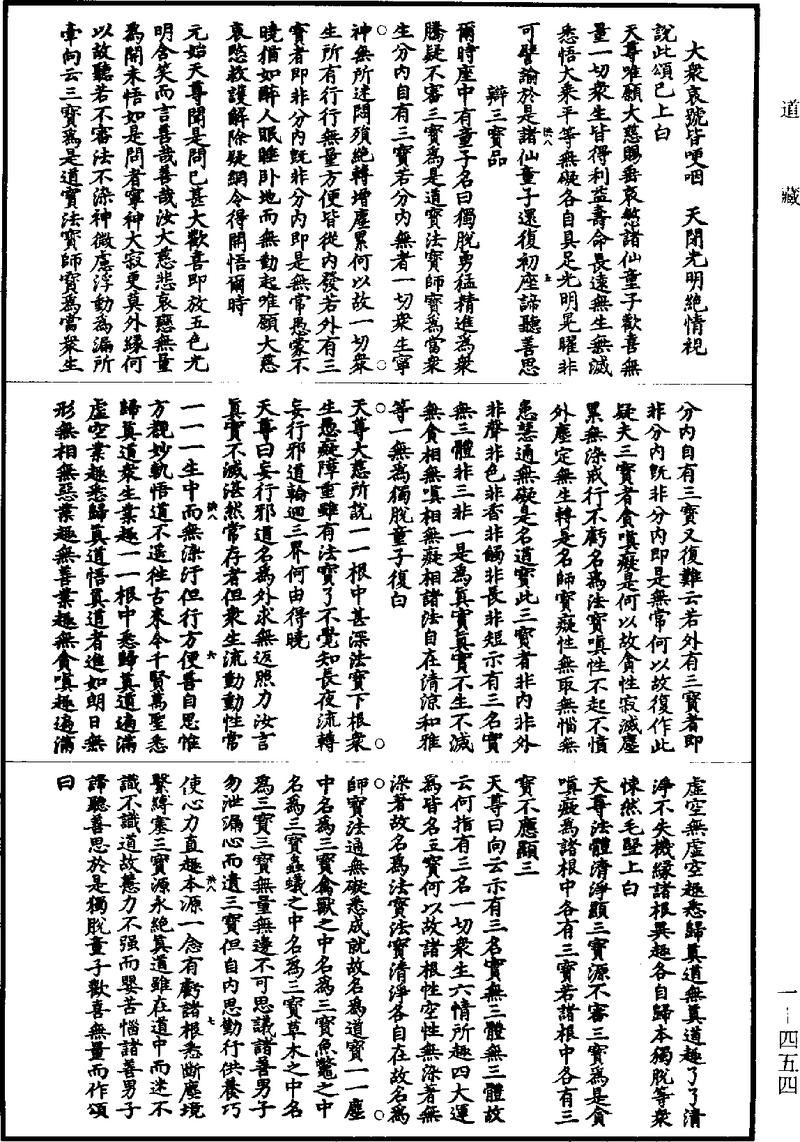 道藏
大衆哀號皆哽咽　天閉光明絶情視
說此頌已上白
天尊唯願大慈賜垂哀愍諸仙童子歡喜無
量一切衆生皆得利益壽命長遠無生無滅
悉悟大乘平等無礙各自具足光明晃曜非
可譬諭於是諸仙童子還復初座諦聽善思
辯三寶品
爾時座中有童子名曰獨脫勇猛精進為衆
騰疑不審三寶為是道寶法寶師寶為當衆
生分內自有三寶若分內無者一切衆生寧
神無所迷悶須絶轉增塵累何以故一切衆
生所有行行無量方便皆從內發若外有三
寶者即非分內既非分內即是無常愚蒙不
曉猶如醉人眼睡卧地而無動起唯願大慈
哀愍救護解除疑網令得開悟爾時
元始天尊聞是問已甚大歡喜即放五色光
明含笑而言善哉善哉汝大慈悲哀愍無量
為開未悟如是問者寧种大寂更莫外緣何
以故聽若不審法不染神微慮浮動為漏所
牽向云三寶為是道寶法寶師寶為當衆生
分內自有三寶又復難云若外有三寶者即
非分內既非分內即是無常何以故復作此
疑夫三寶者貪嗔癡是何以故貪性寂滅塵
累無染戒行不虧名為法寶嗔性不起不憤
外塵定無生轉是名師寶癡性無取無惱無
患慧通無礙是名道寶此三寶者非內非外
非聲非色非香非觸非長非短示有三名實
無三體非三非一是為真實真實不生不滅
無貪相無嗔相無癡相諸法自在清涼和雅
等一無為獨脫童子復白
天尊大慈所說一一根中甚深法寶下根衆
生愚癡障重雖有法寶了不覺知長夜流轉
妄行邪道輪迴三界何由得曉
天尊曰妄行邪道名為外求無返照力汝言
真實不滅湛然常存者但衆生流動動性常
一一一生中而無染汙但行方便善自思惟
方觀妙軌悟道不遥徃古來今千賢萬聖悉
歸真道衆生業趣一一根中悉歸真道遍滿
虛空業趣悉歸真道悟真道者進如朗日無
形無相無惡業趣無善業趣無貪嗔趣遍滿
虛空無虛空趣悉歸真道無真道趣了了清
淨不失機緣諸根異趣各自歸本獨脫等衆
悚然毛竪上白
天尊法體清淨顯三寶源不審三寶為是貪
嗔癡為諸根中各有三寶若諸根中各有三
寶不應顯三
天尊曰向云示有三名實無三體無三體故
云何指有三名一切衆生六情所趣四大運
為皆名三寶何以故諸根性空性無染著無
染著故名為法寶法寶清淨各自在故名為
師寶法通無礙悉成就故名為道寶一一塵
中名為三寶禽獸之中名為三寶魚鼈之中
名為三寶蟲蟻之中名為三寶草木之中名
為三寶三寶無量無邊不可思議諸善男子
勿泄漏心而遺三寶但自內思勤行供養巧
使心力直趣本源一念有虧諸根悉斷塵境
緊縛塞三寶源永絶真道雖在道中而迷不
識不識道故慧力不强而嬰苦惱諸善男子
諦聽善思於是獨脫童子歡喜無量而作頌
曰
一—四五四